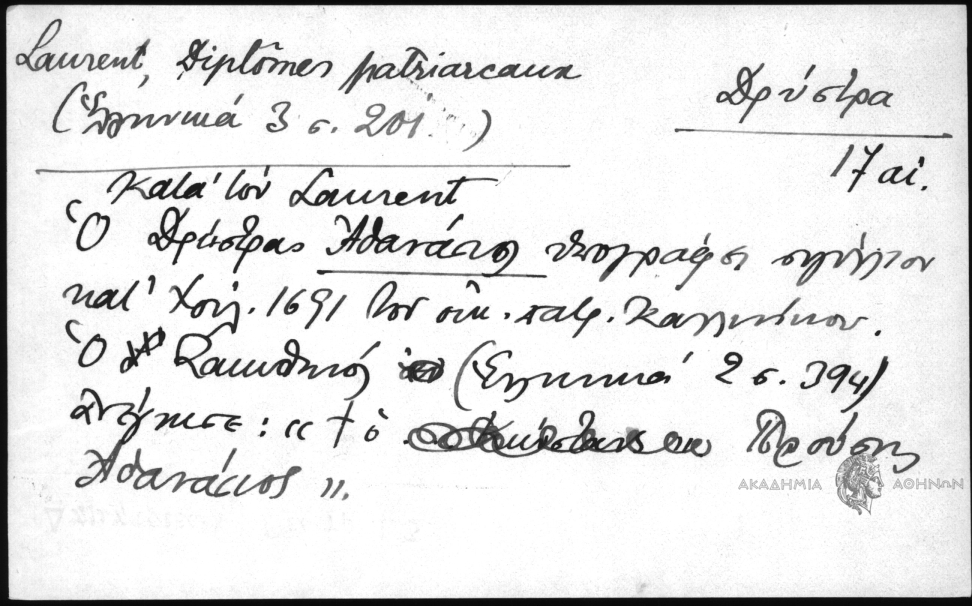 Laurent, Diplômes patriarcaux
(Ἑλληνικά 3 σ. 201 )
Δρύστρα
17 αἰ.
Κατὰ τὸν Laurent
Ὁ Δρύστρας Ἀθανάσιος ὑπογράφει σιγίλλιον
κατ' 1691 τοῦ οἰκ. πατρ. Καλλινίκου.
Ὁ Ζακυθηνός (Ἑλληνικά 2 σ. 394)
ἀνέγνωσε : « † ὁ Προύσης
Ἀθανάσιος ».
ΑΚΑΔΗΜΙΑ ΑΘΗΝΩΝ